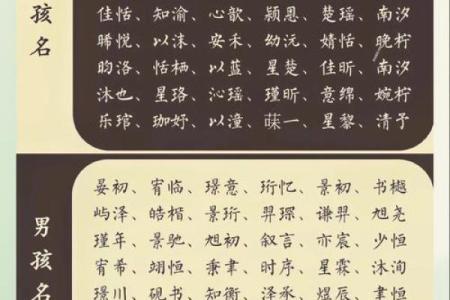 孩名
佳恬、知渝、心歆、颍恩、楚瑶、南汐
晞悦、以沫、安禾、幼沅、婧恬、晚柠
昀洛、恬栖、以蓝、星楚、佳昕、南汐
沐也、星珞、沁瑶、瑾昕、意绵、婉柠
乐琯、珈妤、以潼、菋一、星黎、清予
男孩名
晏初、宥临、璟意、珩忆、景初、书樾
屿泽、皓楷、景珩、羿琛、谦羿、旭尧
瑾年、景驰、旭初、叙言、亦宸、少恒
宥希、翊恒、秉聿、时序、星霖、沐洵
璟川、砚书、知衡、泽丞、煜辰、聿恒